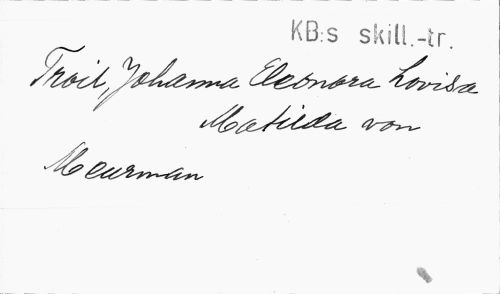 KB:s skill.-tr.
Troil, Johanna Eleonora Lovisa
Matilda von
Meurman